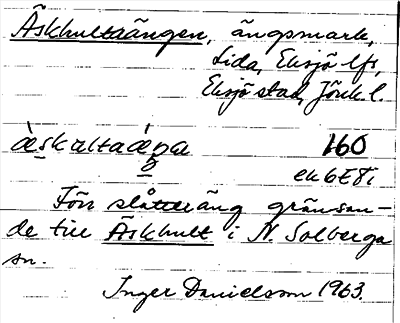 Äskhultaängen, ängsmark,
Lida, Eksjö lfs,
Eksjö stad, Jönk. l.
160
Förr slåtteräng gränsan-
de till Äskhult i N. Solberga
sn.
Inger Danielsson 1963.